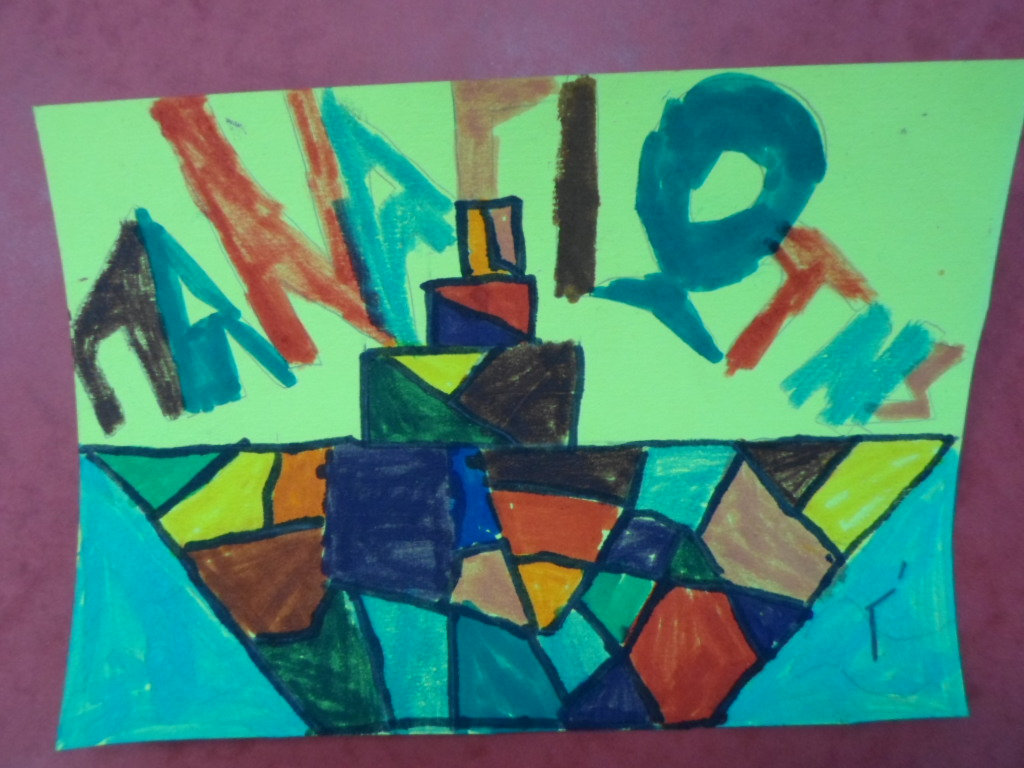 ΠΑΝΑΓΙΩΤΗΣ